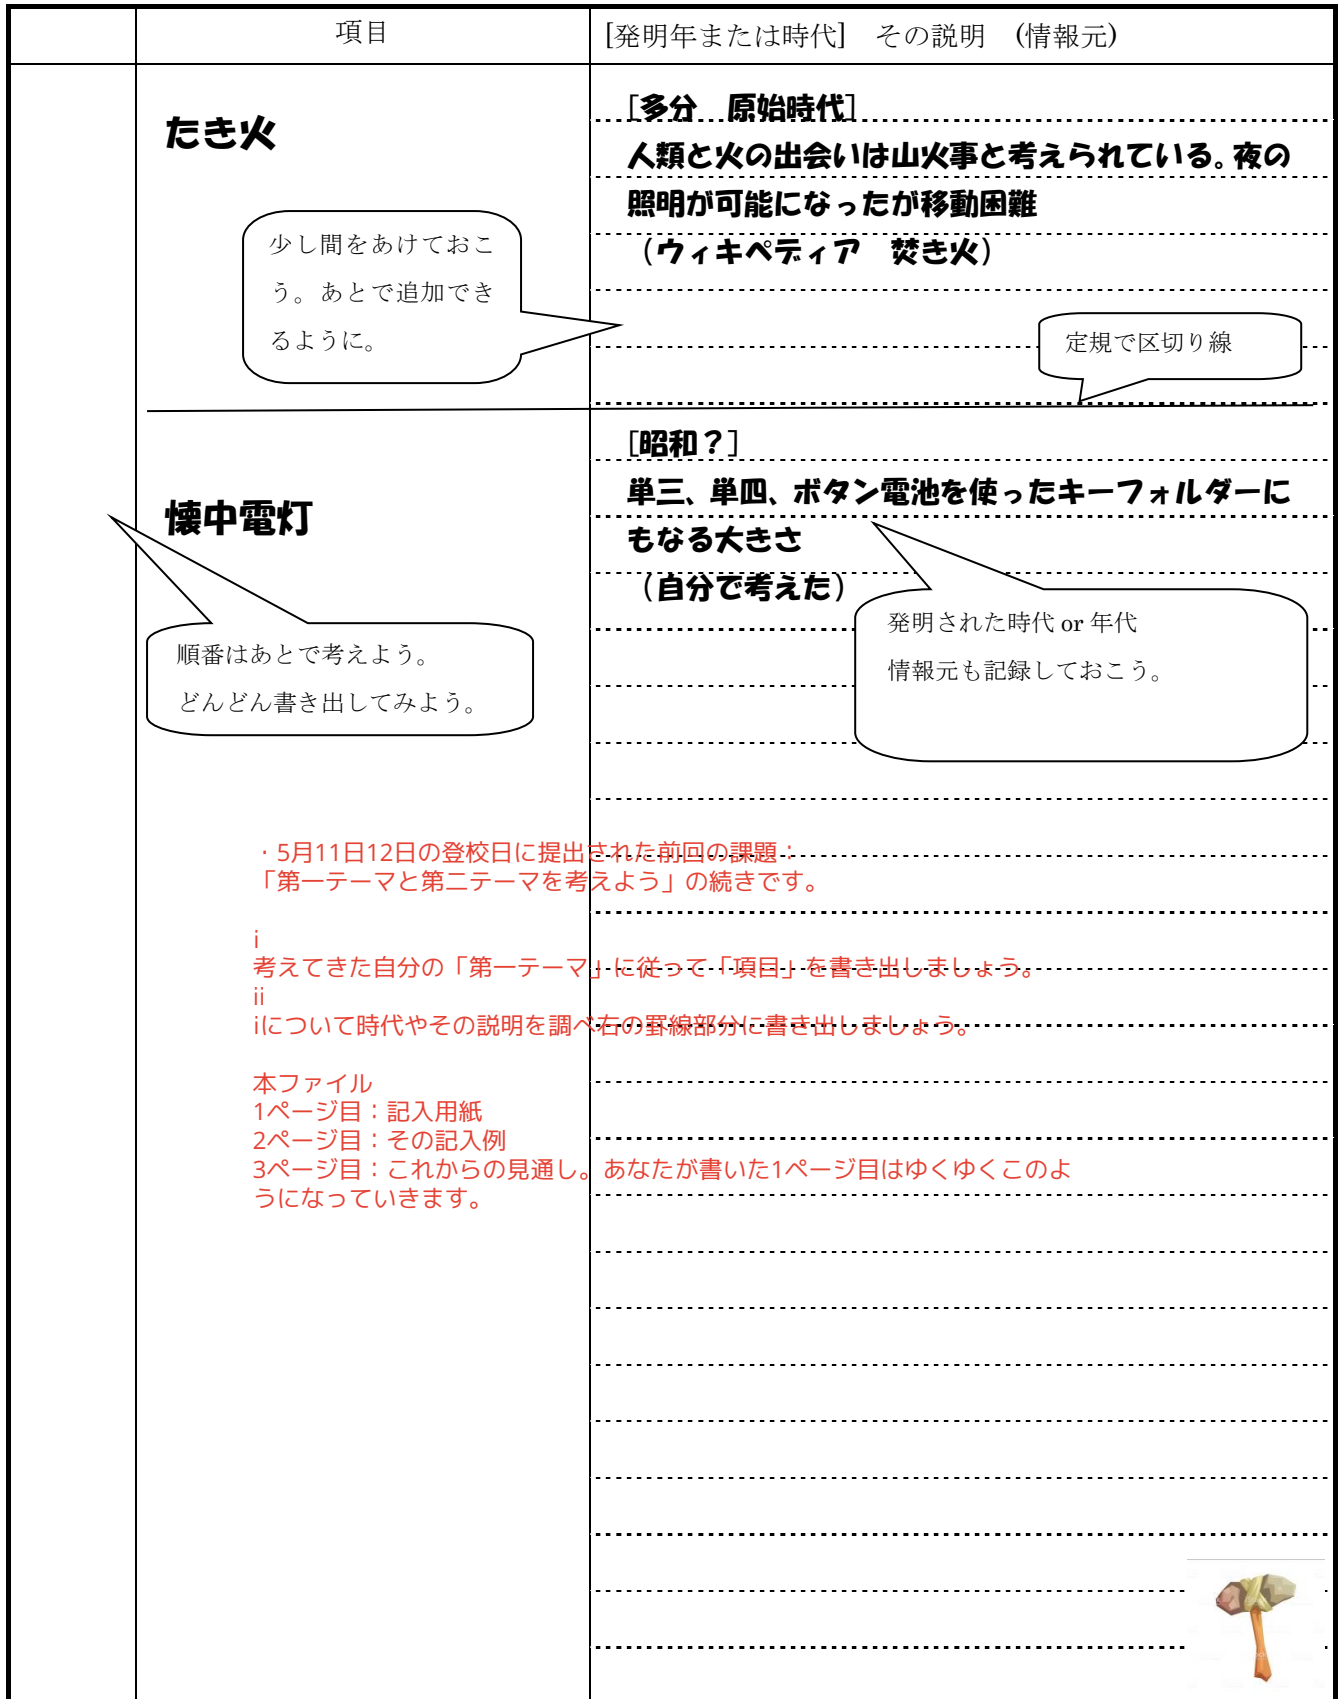 項目
[発明年または時代]　その説明　(情報元)
たき火
[多分　原始時代]
人類と火の出会いは山火事と考えられている。夜の
照明が可能になったが移動困難
（ウィキペディア　焚き火）
少し間をあけておこ
う。あとで追加でき
るように。
定規で区切り線
懐中電灯
[昭和？]
単三、単四、ボタン電池を使ったキーフォルダーに
もなる大きさ
（自分で考えた）
順番はあとで考えよう。
どんどん書き出してみよう。
発明された時代 or 年代
情報元も記録しておこう。
・5月11日12日の登校日に提出された前回の課題：
「第一テーマと第二テーマを考えよう」の続きです。
i
考えてきた自分の「第一テーマ」に従って「項目」を書き出しましょう。
ii
iについて時代やその説明を調べ右の罫線部分に書き出しましょう。
本ファイル
1ページ目：記入用紙
2ページ目：その記入例
3ページ目：これからの見通し。あなたが書いた1ページ目はゆくゆくこのよ
うになっていきます。